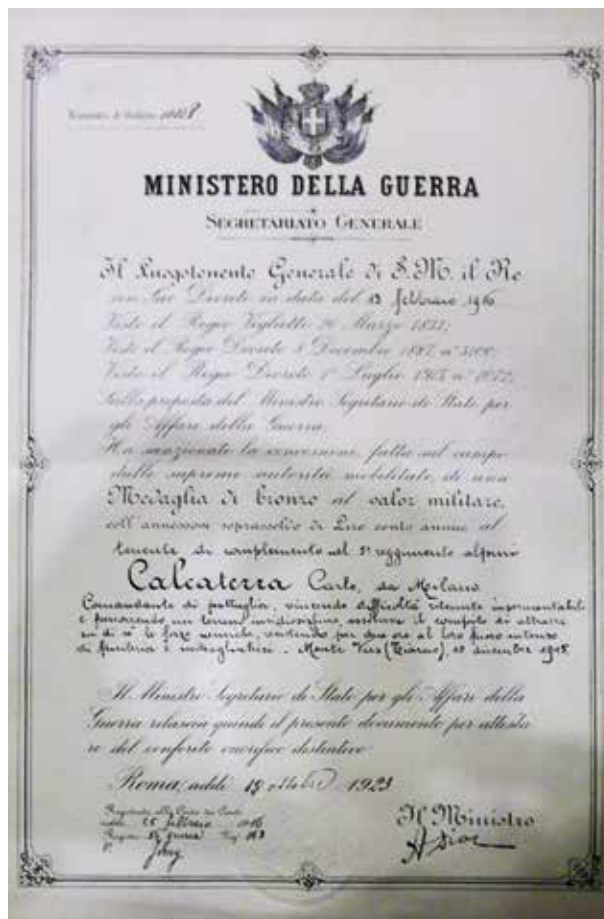 MINISTERO DELLA GUERRA
SEGRETARIATO GENERALE
Il Luogotenente Generale di S. M. il Re
con Suo Decreto in data del 13 febbraio 1916
Visto il Regio Viglietto 26 Marzo 1833;
Visto il Regio Decreto 8 Decembre 1887, n°
Visto il Regio Decreto 1° Luglio
Sulla proposta del Ministro Segretario di Stato per
gli Affari della Guerra;
Ha sanzionato la concessione, fatta sul campo
dalle supreme autorità mobilitate, di una
Medaglia di bronzo al valor militare,
coll'annesson soprassoldo di Lire cento annue al
tenente di complemento nel 5° reggimento alpini
Calcaterra Carlo, da Milano
Comandante di pattuglia, vincendo difficoltà ritenute insormontabili
e percorrendo un terreno insidiosissimo, assolveva il compito di attrarre
su di sè le forze nemiche, resistendo per due ore al loro fuoco intenso
di fucileria e mitragliatrici. - Monte Vies (Tiarno), 18 dicembre 1915.
Il Ministro Segretario di Stato per gli Affari della
Guerra rilascia quindi il presente documento per attesta
re del conferito onorifico distintivo
Roma, addì 19 ottobre 1923
Registrato alla Corte dei Conti
addì 25 febbraio 1916
Il Ministro